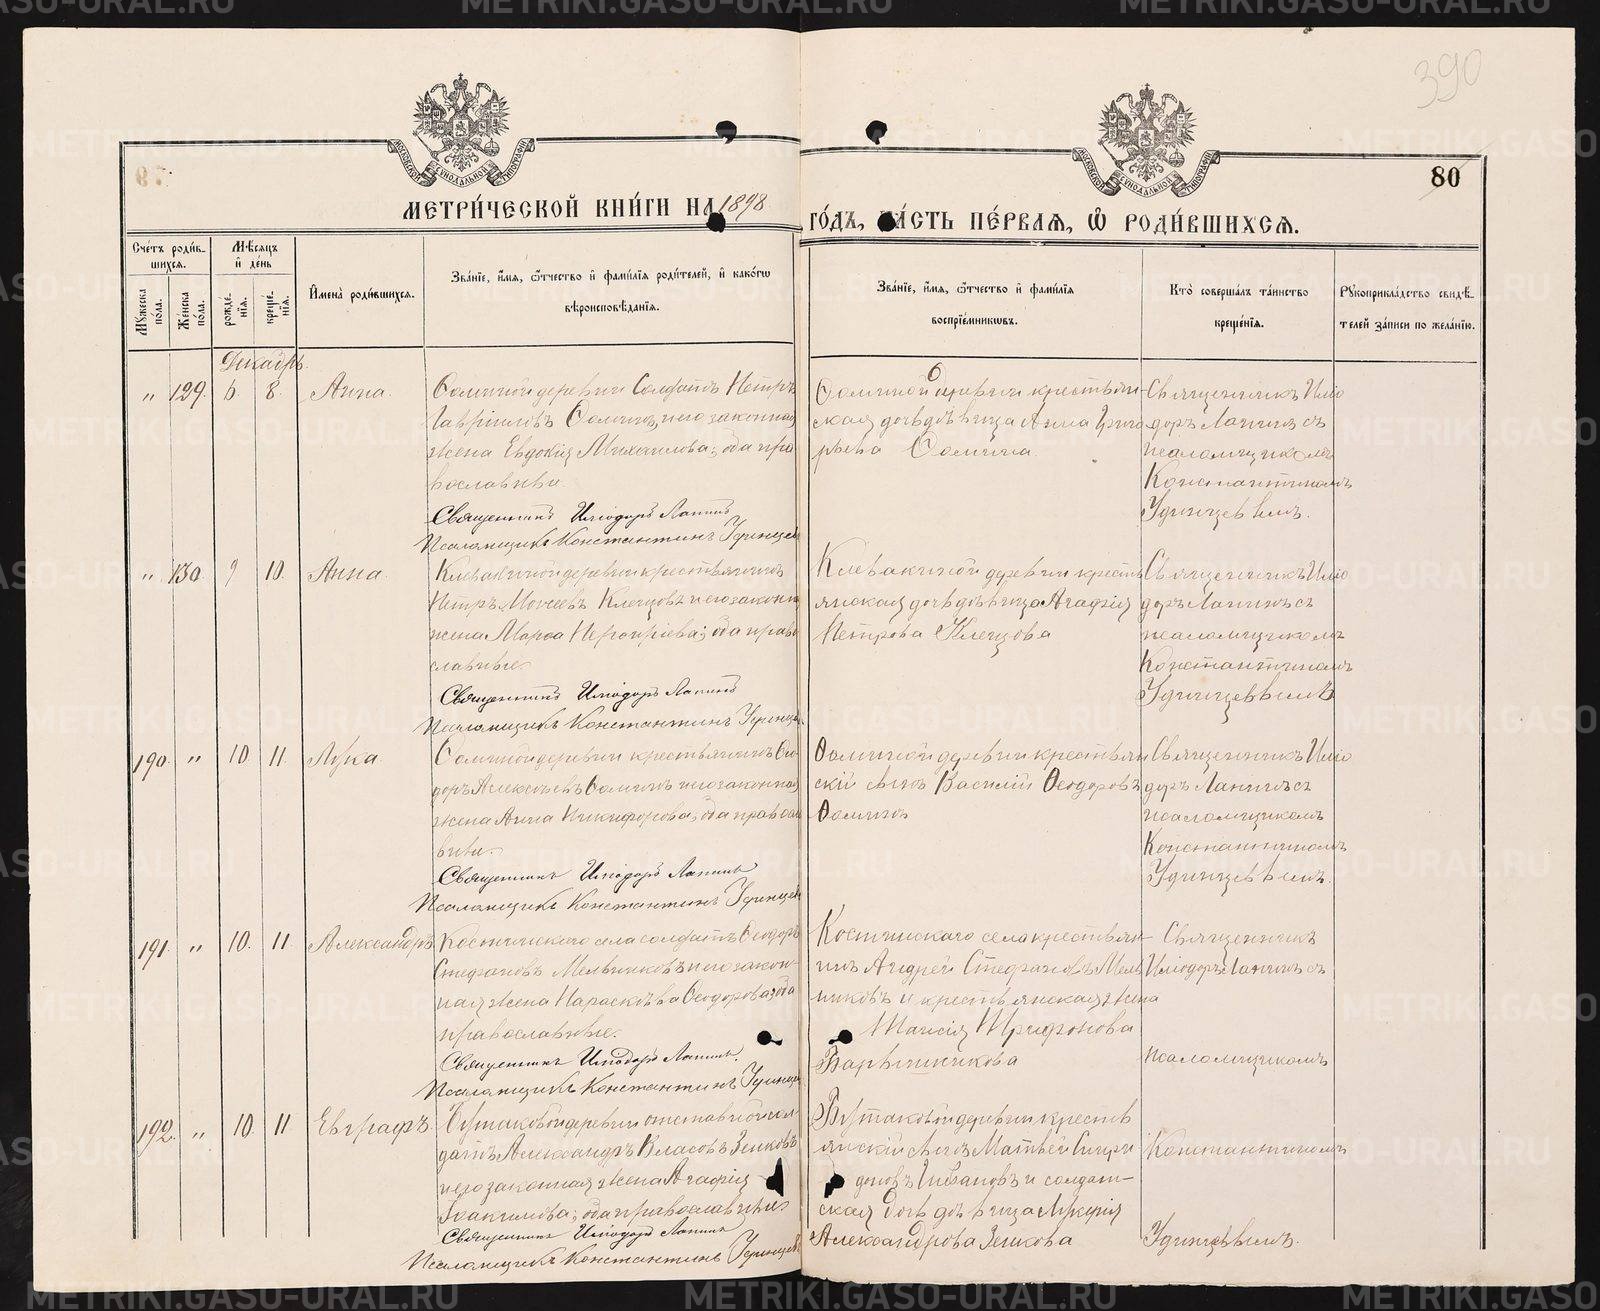 390
80
МЕТРИ́ЧЕСКОЙ КНИ́ГИ НА 1898
ГО́ДЪ, ЧА́СТЬ ПЕ́РВАЯ, Ѽ РОДИ́ВШИХСЯ.
Сче́тъ роди́в-
шихся.
Мѣ́сяцъ
и́ де́нь
Му́жеска
по́ла.
Же́нска
по́ла.
рожде́-
нїя.
креще́-
нїя.
И҆мена̀ роди́вшихся.
Зва́нїе, и҆́мя, ѻ҆́тчество и҆ фами́лїя роди́телей, и҆ како́гѡ
вѣроисповѣ́данїя.
Зва́нїе, и҆́мя, ѻ҆́тчество и҆ фами́лїя
воспрїе́мникѡвъ.
Кто̀ соверша́лъ та́инство
креще́нїя.
Рꙋкоприкла́дство свидѣ́-
телей за́писи по жела́нїю.
Декабрь.
„ 129. 6. 8. Анна.
Ѳоминой деревни Солдатъ Петръ
Гавріиловъ Ѳоминъ, и его законная
жена Евдокія Михаилова; оба пра
вославные
Священникъ Иліодоръ Лапинъ
Псаломщикъ Константинъ Удинцев
Ѳоминой деревни крестьян-
ская дочь дѣвица Анна Григо
рьева Ѳомина
Священникъ Иліо
доръ Лапинъ съ
псаломщикомъ
Константиномъ
Удинцевымъ.
„ 130. 9 10. Анна.
Клевакиной деревни крестьянинъ
Петръ Моисеевъ Клещовъ и его законн
жена Марѳа Перфиріева; оба право
славные.
Священникъ Иліодоръ Лапинъ
Псаломщикъ Константинъ Удинце
Клевакиной деревни кресть
янская дочь дѣвица Агафія
Петрова Клещова
Священникъ Иліо
доръ Лапинъ съ
псаломщикомъ
Константиномъ
Удинцевымъ
190. „ 10. 11. Лука.
Ѳоминой деревни крестьянинъ Ѳео
доръ Алексѣевъ Ѳоминъ и его законная
жена Анна Никифорова; оба правосла
вные.
Священникъ Иліодоръ Лапинъ
Псаломщикъ Константинъ Удинцев
Ѳоминой деревни крестьян
скій сынъ Василій Ѳеодоровъ
Ѳоминъ
Священникъ Иліо
доръ Лапинъ съ
псаломщикомъ
Константиномъ
Удинцевымъ.
191. „ 10. 11 Александръ
Костинскаго села солдатъ Ѳеодоръ
Стефановъ Мельниковъ и его закон-
ная жена Параскѣва Ѳеодорова; оба
православные.
Священникъ Иліодоръ Лапинъ.
Псаломщикъ Константинъ Удинце
Костинскаго села крестьян-
инъ Андрей Стефановъ Мель
никовъ и крестьянская жена
Таисія Трифонова
Барышникова
Священникъ
Иліодоръ Лапинъ съ
псаломщикомъ
192. „ 10. 11 Евграфъ.
Бутаковой деревни отставной сол
датъ Александръ Власовъ Зенковъ
и его законная жена Агафія
Іоакимова; оба православные
Священникъ Иліодоръ Лапинъ
Псаломщикъ Константинъ Удинцевъ
Бутаковой деревни кресть
янскій сынъ Матвей Спири
доновъ и солдат-
ская дочь дѣвица Лукерія
Александрова Зенкова
Константиномъ
Удинцевымъ.
METRIKI.GASO-URAL.RU